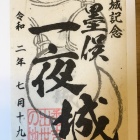 城記念
墨俣
一夜城
令和二年七月十九